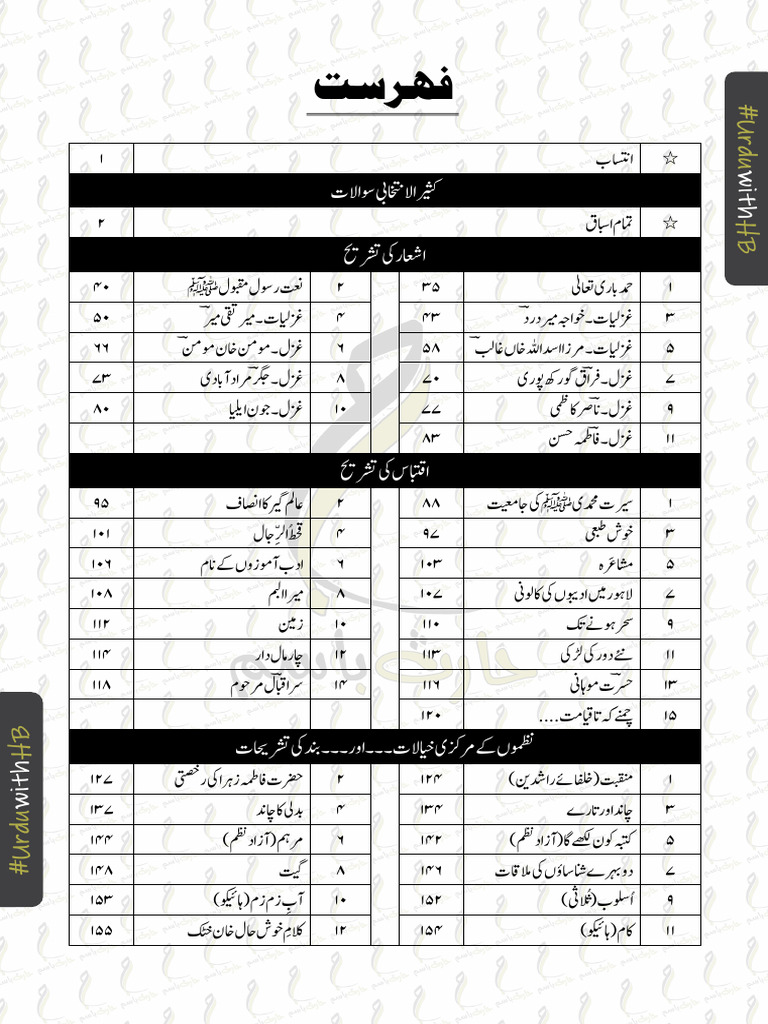 فہرست
☆ انتساب ۱
کثیر الانتخابی سوالات
☆ تمام اسباق ۲
اشعار کی تشریح
۱ حمد باری تعالیٰ ۳۵ ۲ نعت رسول مقبول ﷺ ۴۰
۳ غزلیات۔ خواجہ میر درد ۴۳ ۴ غزلیات۔ میر تقی میر ۵۰
۵ غزلیات۔ مرزا اسد اللہ خاں غالب ۵۸ ۶ غزل۔ مومن خان مومن ۶۶
۷ غزل۔ فراق گورکھ پوری ۷۰ ۸ غزل۔ جگر مراد آبادی ۷۳
۹ غزل۔ ناصر کاظمی ۷۷ ۱۰ غزل۔ جون ایلیا ۸۰
۱۱ غزل۔ فاطمہ حسن ۸۳
اقتباس کی تشریح
۱ سیرت محمدی ﷺ کی جامعیت ۸۸ ۲ عالم گیر کا انصاف ۹۵
۳ خوش طبعی ۹۷ ۴ قحط الرِّجال ۱۰۱
۵ مشاعرہ ۱۰۳ ۶ ادب آموزوں کے نام ۱۰۶
۷ لاہور میں ادیبوں کی کالونی ۱۰۷ ۸ میرا البم ۱۰۸
۹ سحر ہونے تک ۱۱۰ ۱۰ زمین ۱۱۲
۱۱ نئے دور کی لڑکی ۱۱۳ ۱۲ چار مال دار ۱۱۴
۱۳ حسرت موہانی ۱۱۶ ۱۴ سر اقبال مرحوم ۱۱۸
۱۵ چمنے کہ تا قیامت .... ۱۲۰
نظموں کے مرکزی خیالات۔۔۔ اور۔۔۔ بند کی تشریحات
۱ منقبت (خلفائے راشدین) ۱۲۴ ۲ حضرت فاطمہ زہرا کی رخصتی ۱۲۷
۳ چاند اور تارے ۱۳۴ ۴ بدلی کا چاند ۱۳۷
۵ کتبہ کون لکھے گا (آزاد نظم) ۱۴۲ ۶ مرہم (آزاد نظم) ۱۴۴
۷ دوہرے شناساؤں کی ملاقات ۱۴۶ ۸ گیت ۱۴۸
۹ اُسلوب (ثلاثی) ۱۵۲ ۱۰ آبِ زم زم (ہائیکو) ۱۵۳
۱۱ کام (ہائیکو) ۱۵۴ ۱۲ کلامِ خوش حال خان خٹک ۱۵۵
#UrduwithHB
#UrduwithHB
حارث باسم